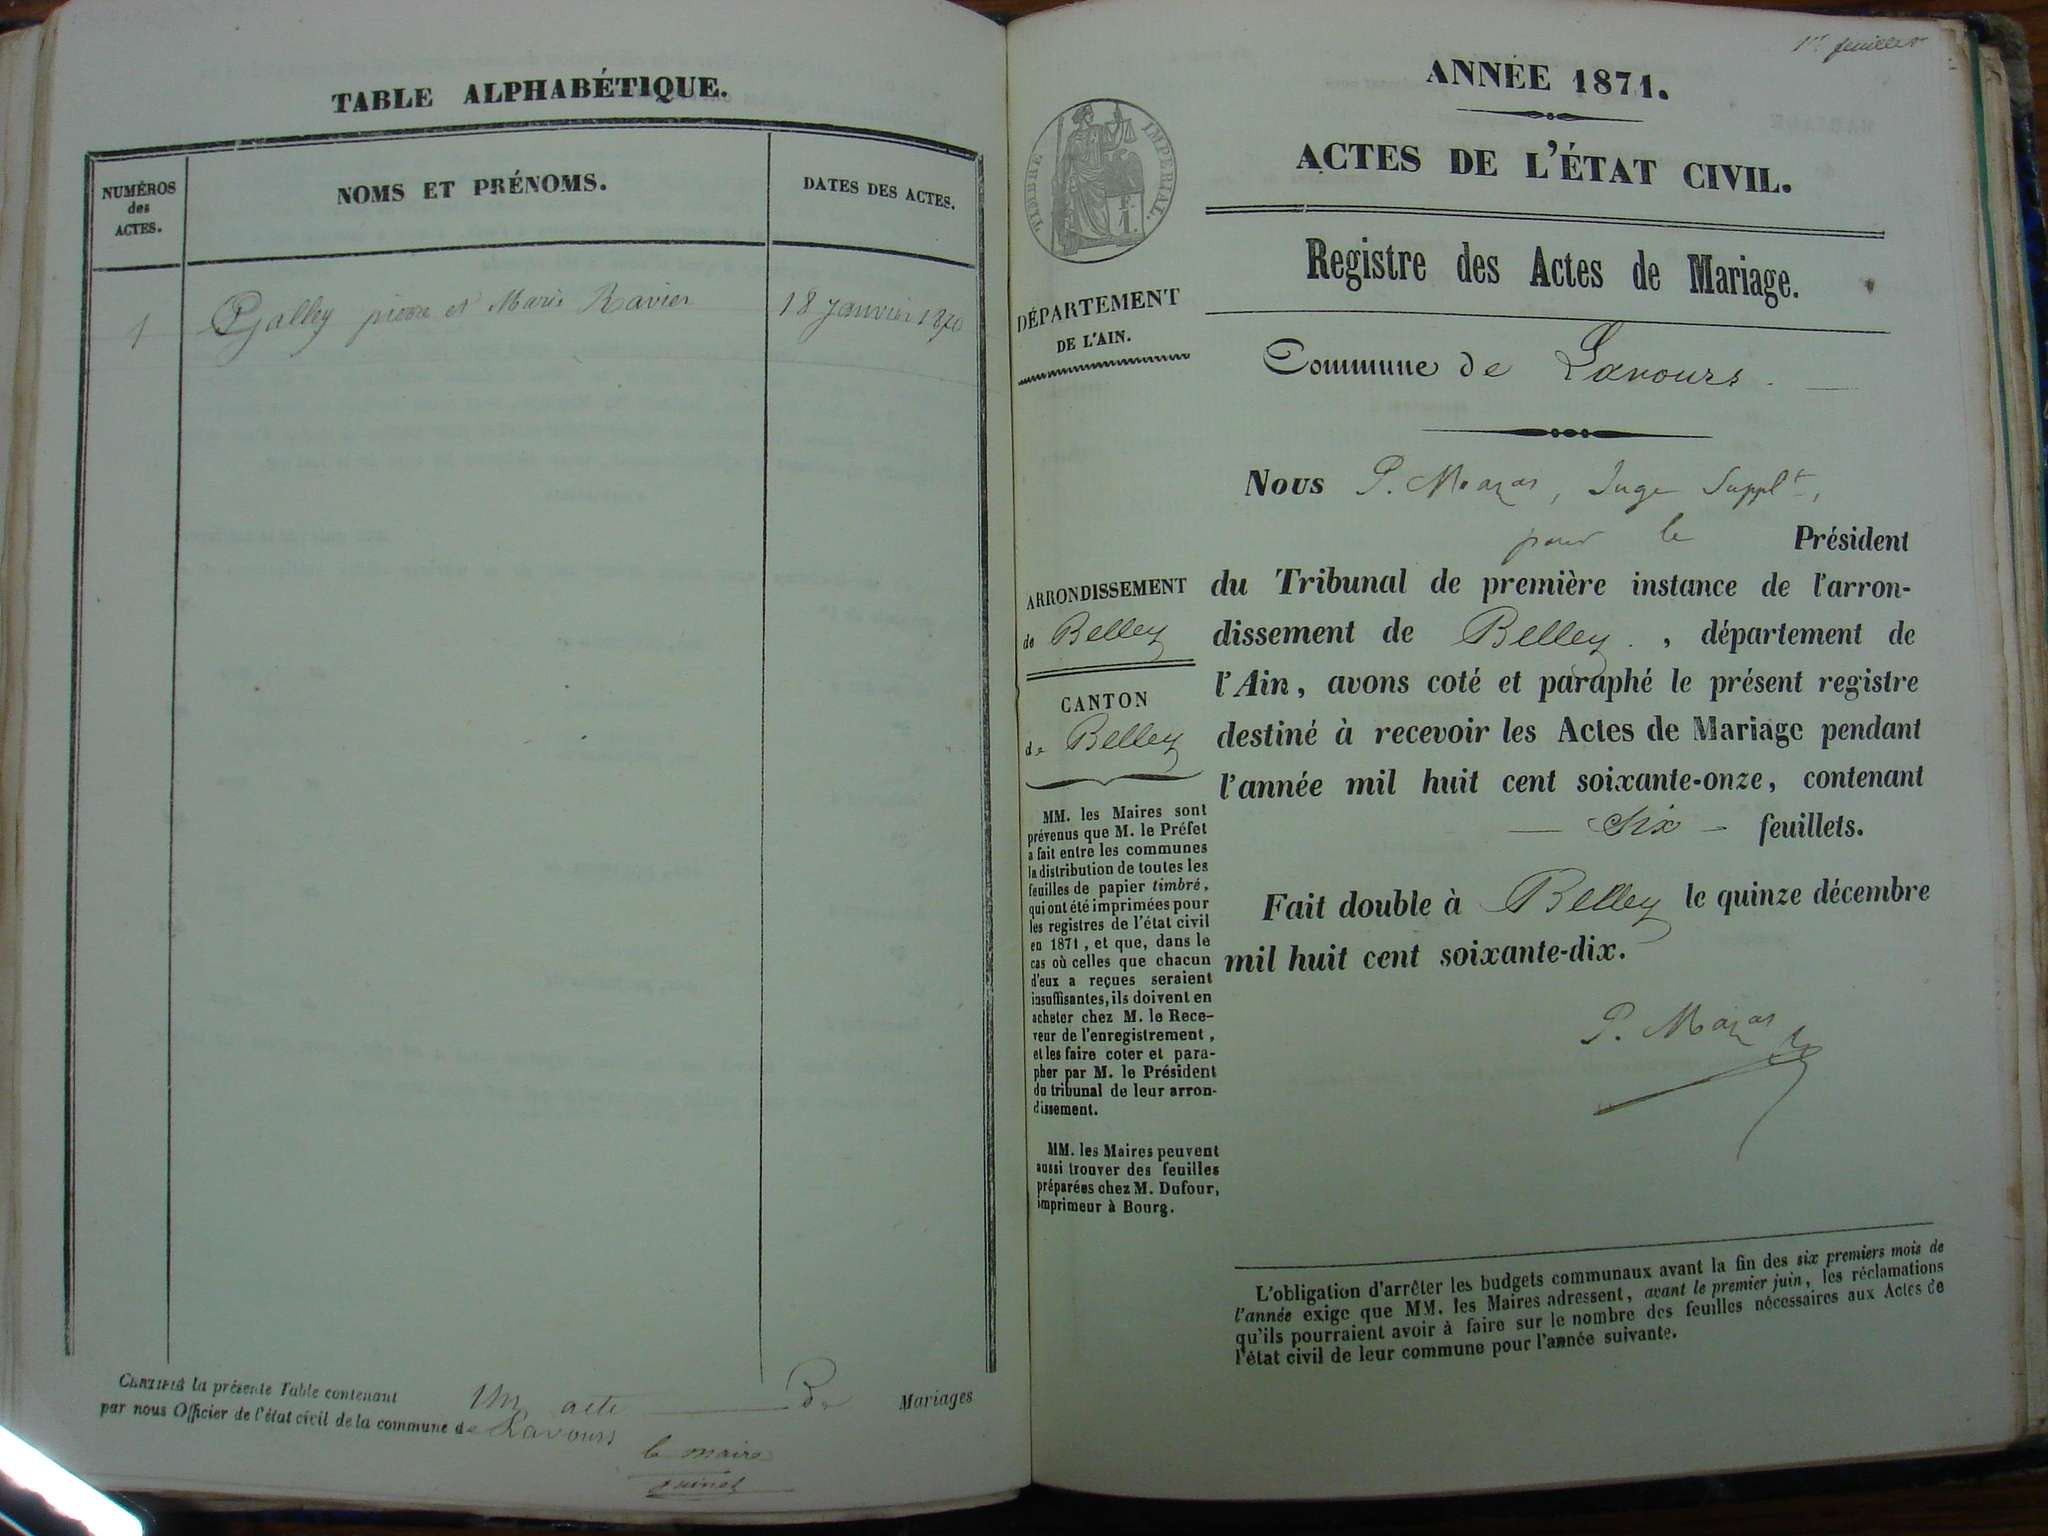 TABLE ALPHABÉTIQUE.
NUMÉROS des ACTES.
NOMS ET PRÉNOMS.
DATES DES ACTES.
1 Galley pierre et Marie Ravier 18 Janvier 1870
CERTIFIÉ la présente Table contenant Un acte De Mariages
par nous Officier de l'état civil de la commune de Lavours
le maire
1er feuillet
ANNÉE 1871.
ACTES DE L'ÉTAT CIVIL.
TIMBRE IMPÉRIAL.
1 F.
Registre des Actes de Mariage.
DÉPARTEMENT
DE L'AIN.
Commune de Lavours.
ARRONDISSEMENT
de Belley
CANTON
de Belley
MM. les Maires sont
prévenus que M. le Préfet
a fait entre les communes
la distribution de toutes les
feuilles de papier timbré,
qui ont été imprimées pour
les registres de l'état civil
en 1871, et que, dans le
cas où celles que chacun
d'eux a reçues seraient
insuffisantes, ils doivent en
acheter chez M. le Rece-
veur de l'enregistrement,
et les faire coter et para-
pher par M. le Président
du tribunal de leur arron-
dissement.
MM. les Maires peuvent
aussi trouver des feuilles
préparées chez M. Dufour,
imprimeur à Bourg.
Nous P. Mazas, Juge Supplt,
pour le Président
du Tribunal de première instance de l'arron-
dissement de Belley., département de
l'Ain, avons coté et paraphé le présent registre
destiné à recevoir les Actes de Mariage pendant
l'année mil huit cent soixante-onze, contenant
— Six — feuillets.
Fait double à Belley le quinze décembre
mil huit cent soixante-dix.
P. Mazas
L'obligation d'arrêter les budgets communaux avant la fin des six premiers mois de
l'année exige que MM. les Maires adressent, avant le premier juin, les réclamations
qu'ils pourraient avoir à faire sur le nombre des feuilles nécessaires aux Actes de
l'état civil de leur commune pour l'année suivante.